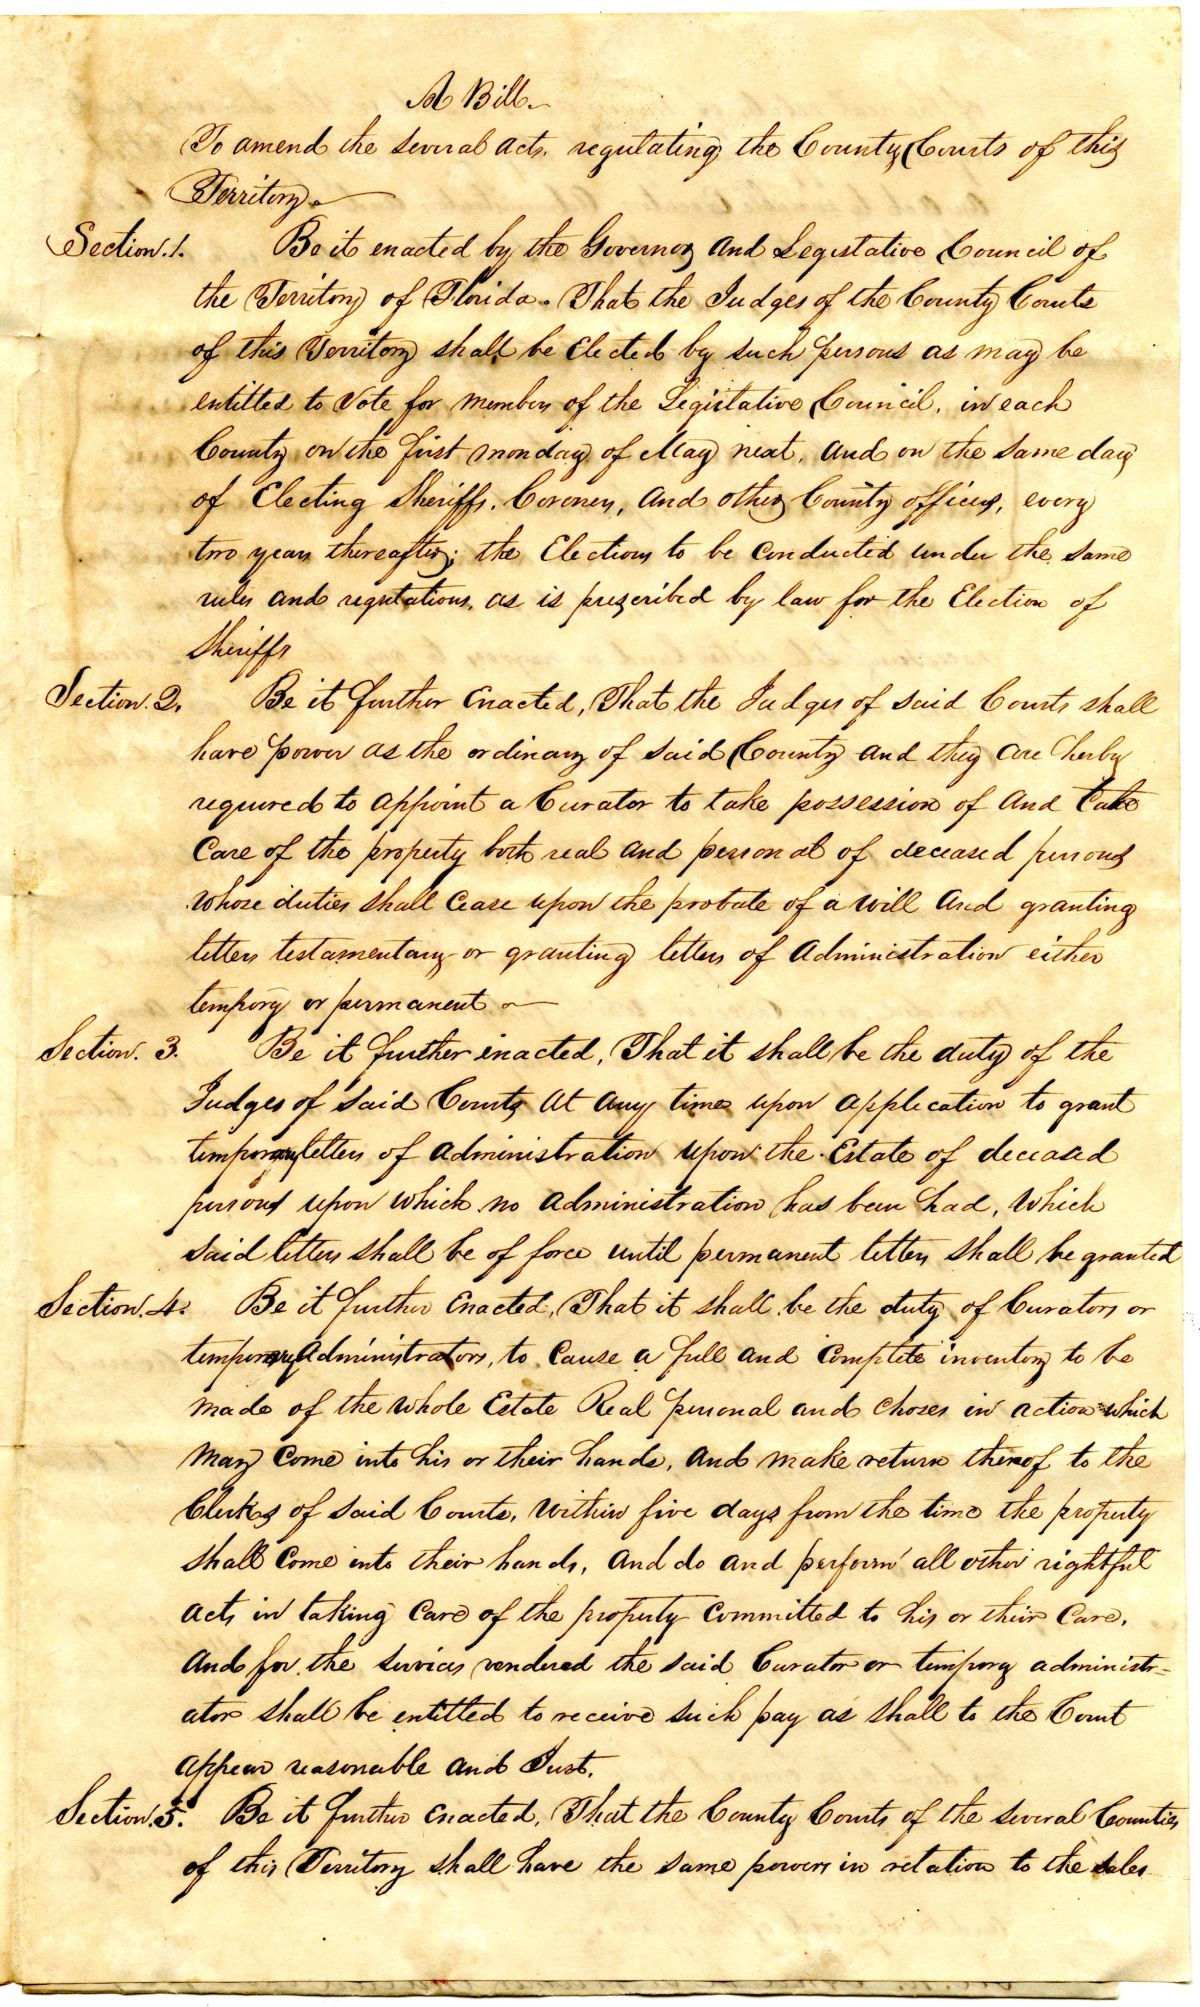 A Bill.
To amend the several acts. regulating the County Courts of this
Territory.
Section.1. Be it enacted by the Governor and Legislative Council of
the Territory of Florida. That the Judges of the County Courts
of this Territory shall be Elected by such persons as may be
entitled to Vote for members of the Legislative Council, in each
County on the first monday of May next, and on the same day
of Electing Sheriffs. Coroners, and other County officers, every
two years thereafter; the Elections to be conducted under the same
rules and regulations, as is prescribed by law for the Election of
Sheriffs
Section.2. Be it further Enacted, That the Judges of said Courts shall
have power as the ordinary of said County and they are herby
required to appoint a Curator to take possession of and take
Care of the property both real and personal of deceased persons
whose duties shall Cease upon the probate of a will and granting
letters testamentary or granting letters of administration either
tempory or permanent
Section. 3. Be it further enacted, That it shall be the duty of the
Judges of said Courts at any time upon application to grant
temporary letters of administration upon the Estate of deceased
persons upon which no administration has been had, which
said letters shall be of force until permanent letters shall be granted
Section.4. Be it further Enacted, That it shall be the duty of Curators or
temporary administrators, to Cause a full and Complete inventory to be
made of the whole Estate Real personal and Choses in action which
may Come into his or their hands, and make return thereof to the
Clerks of said Courts, within five days from the time the property
shall Come into their hands, and do and perform all other rightful
acts in taking Care of the property Committed to his or their Care,
and for the services rendered the said Curator or tempory administr-
ator shall be entitled to receive such pay as shall to the Court
appear reasonable and Just.
Section.5. Be it further Enacted, That the County Courts of the several Counties
of this Territory shall have the same powers in relation to the sales